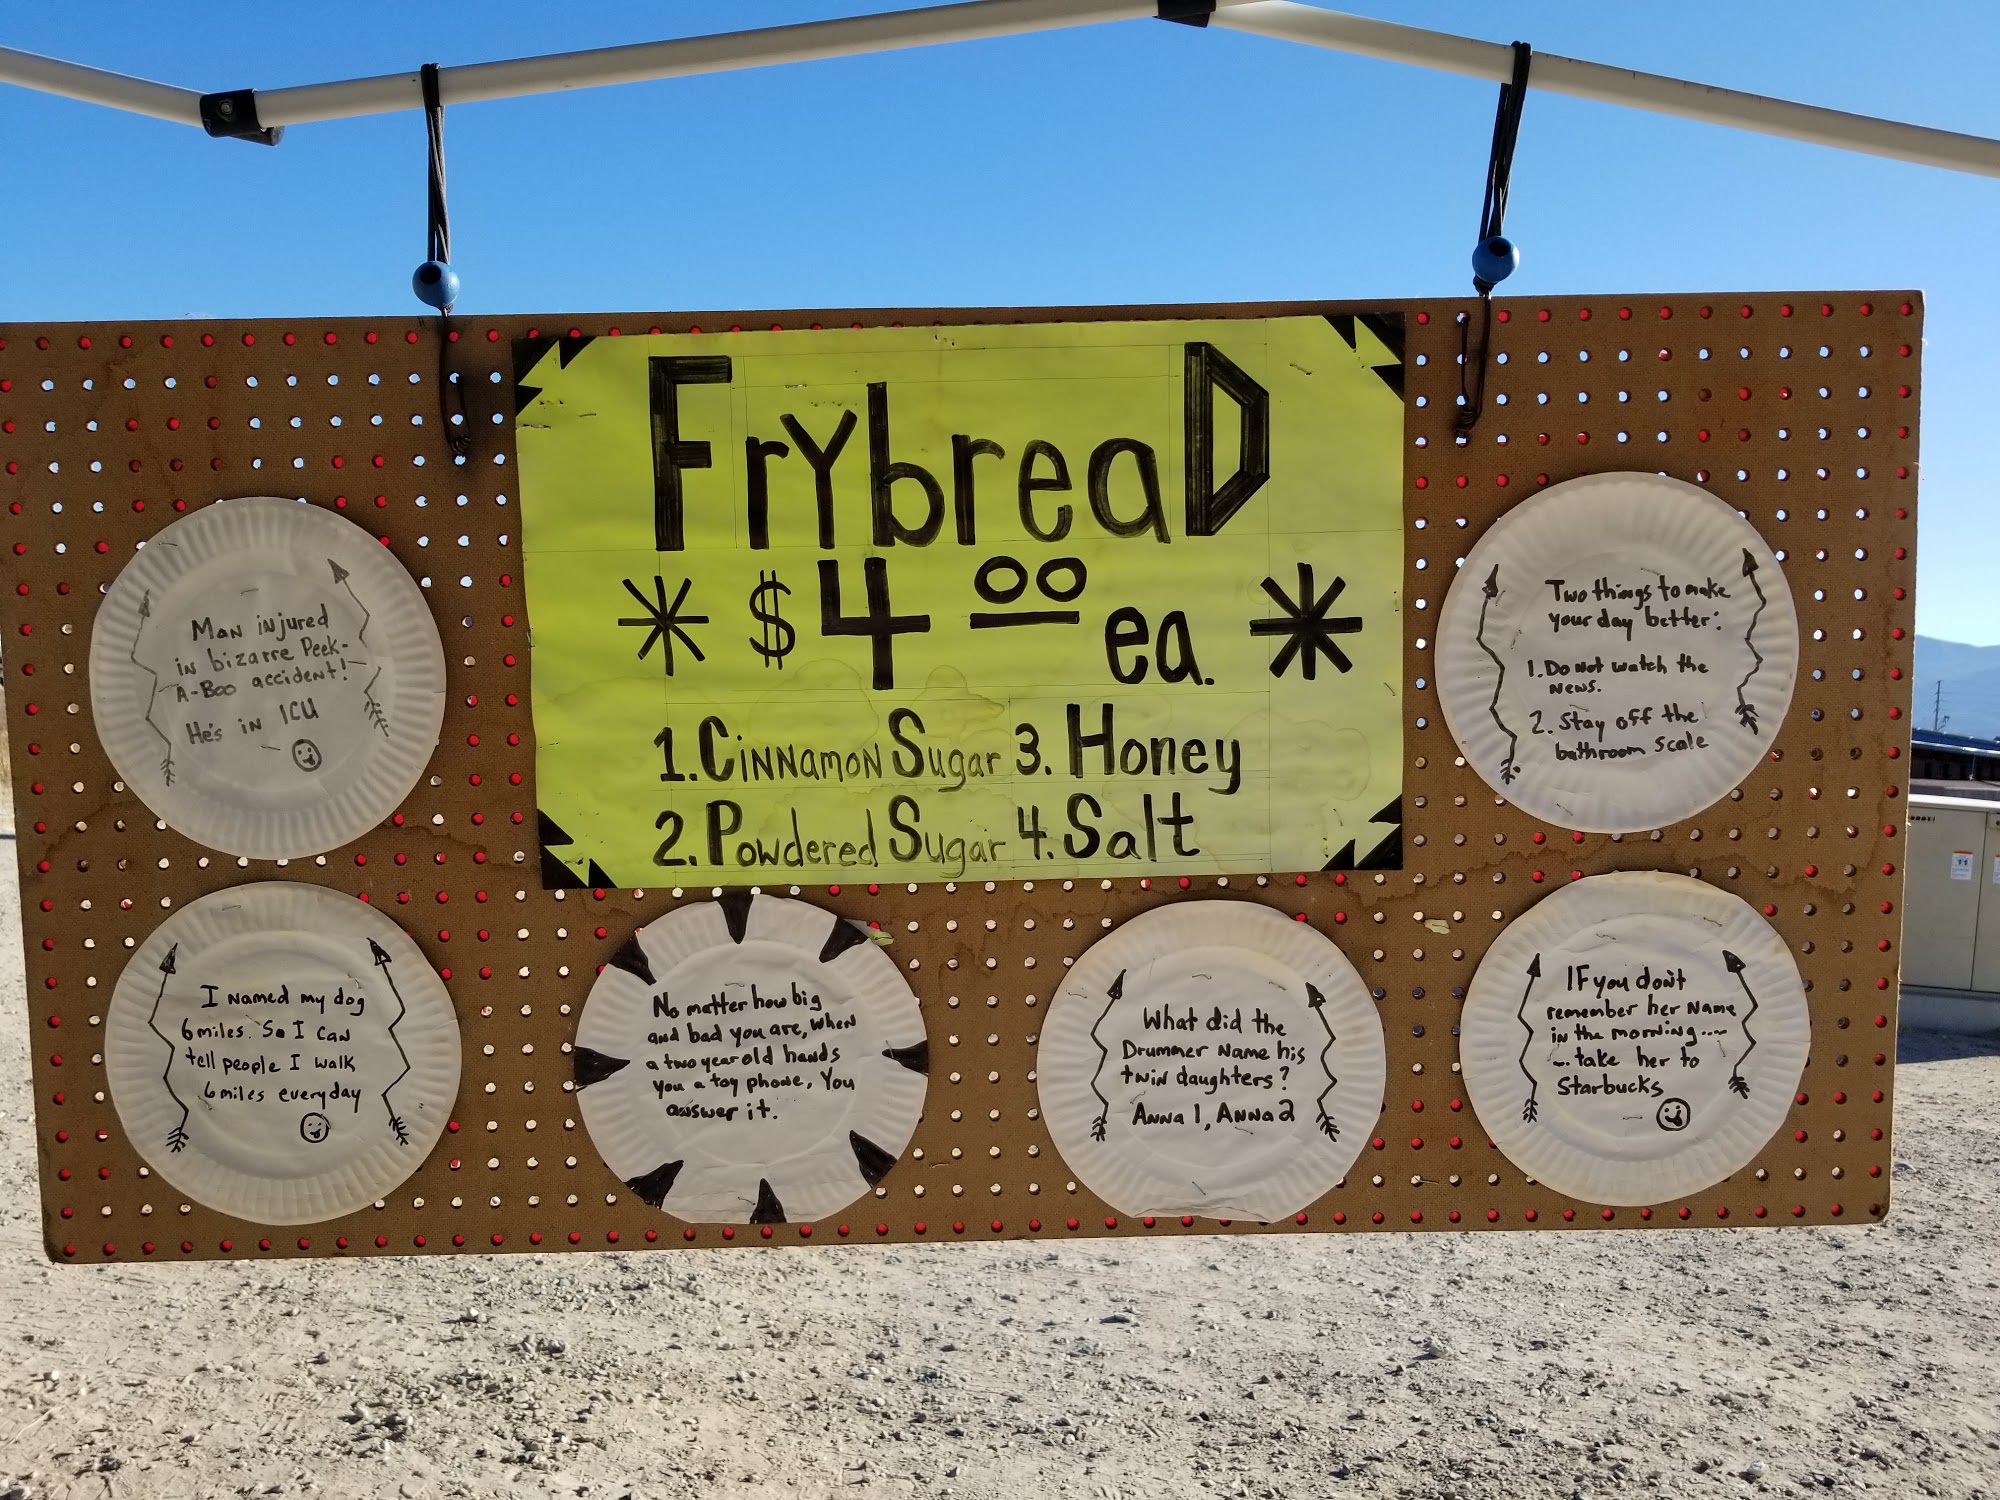 FrybreaD
* $4.00 ea. *
1. Cinnamon Sugar 3. Honey
2. Powdered Sugar 4. Salt
Man injured
in bizarre Peek-
A-Boo accident!
He's in ICU
Two things to make
your day better:
1. Do not watch the
news.
2. Stay off the
bathroom scale
I named my dog
6 miles. So I can
tell people I walk
6 miles everyday
No matter how big
and bad you are, when
a two year old hands
you a toy phone, You
answer it.
What did the
Drummer name his
twin daughters?
Anna 1, Anna 2
IF you don't
remember her name
in the morning....
... take her to
Starbucks
11